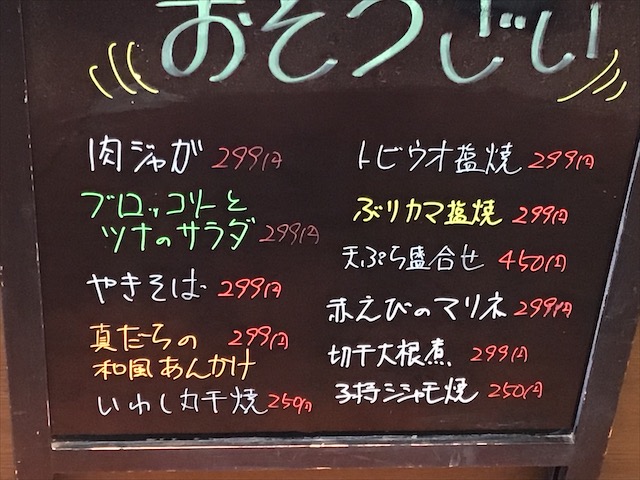 おそうざい
肉ジャガ 299円
ブロッコリーと
ツナのサラダ 299円
やきそば 299円
真だらの 299円
和風あんかけ
いわし丸干焼 250円
トビウオ塩焼 299円
ぶりカマ塩焼 299円
天ぷら盛合せ 450円
赤えびのマリネ 299円
切干大根煮 299円
子持シシャモ焼 250円